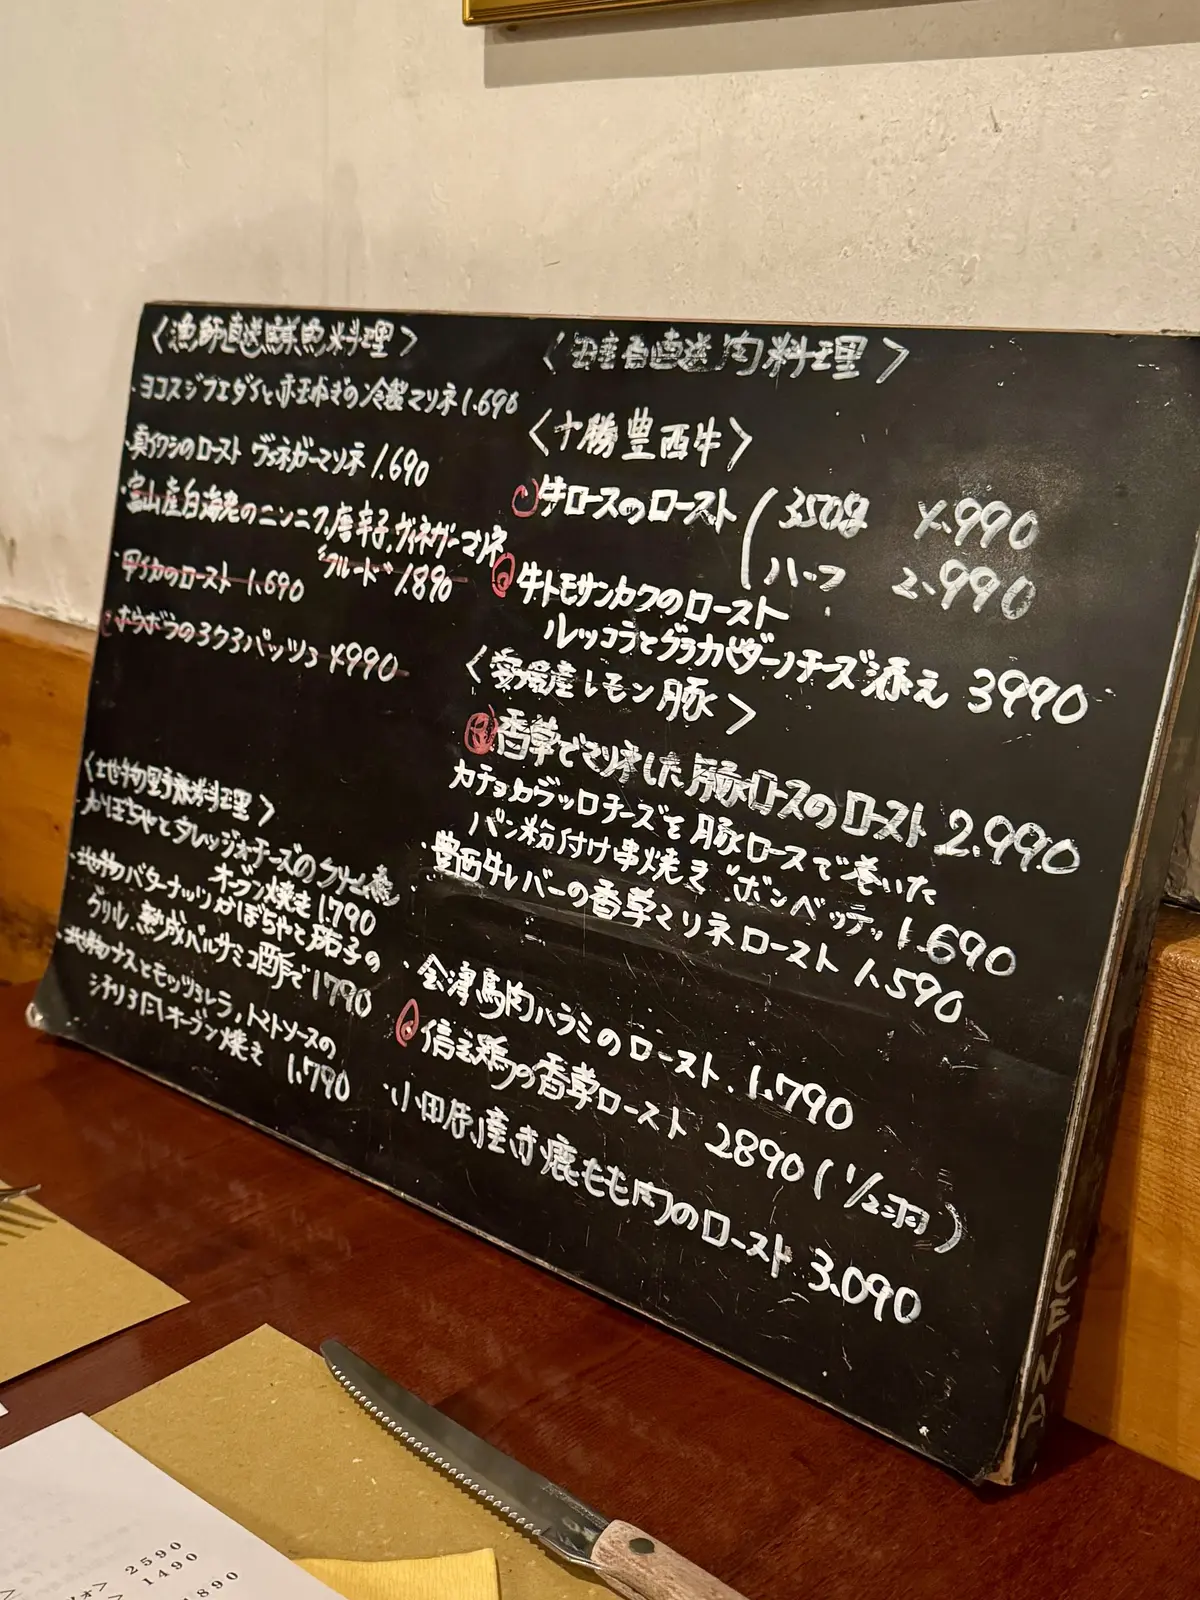 〈漁師直送鮮魚料理〉
・ヨコスジフエダイと赤玉ねぎの冷製マリネ 1.690
・真イワシのロースト ヴィネガーマリネ 1.690
・富山産白海老のニンニク、唐辛子、ヴィネガーマリネ
"クルード" 1.890
・甲イカのロースト 1.690
ホウボウのアクアパッツァ 4990
〈地物野菜料理〉
かぼちゃとタレッジォチーズの
オーブン焼き 1.790
・地物バターナッツかぼちゃと茄子の
グリル、熟成バルサミコ酢で 1790
・地物ナスとモッツァレラ、トマトソースの
シチリア風オーブン焼き 1.790
〈生産者直送肉料理〉
〈十勝豊西牛〉
牛ロースのロースト ( 350g 4.990
ハーフ 2.990
牛トモサンカクのロースト
ルッコラとグラナパダーノチーズ添え 3990
〈愛媛産レモン豚〉
香草でマリネした豚ロースのロースト 2.990
カチョカヴァッロチーズを豚ロースで巻いた
パン粉付け串焼き "ボンベッテ" 1.690
・豊西牛レバーの香草マリネロースト 1.590
・会津馬肉ハラミのロースト 1.790
信玄鶏の香草ロースト 2890 (1/2羽)
・小田原産赤鹿もも肉のロースト 3.090
CENA
2590
1490
890